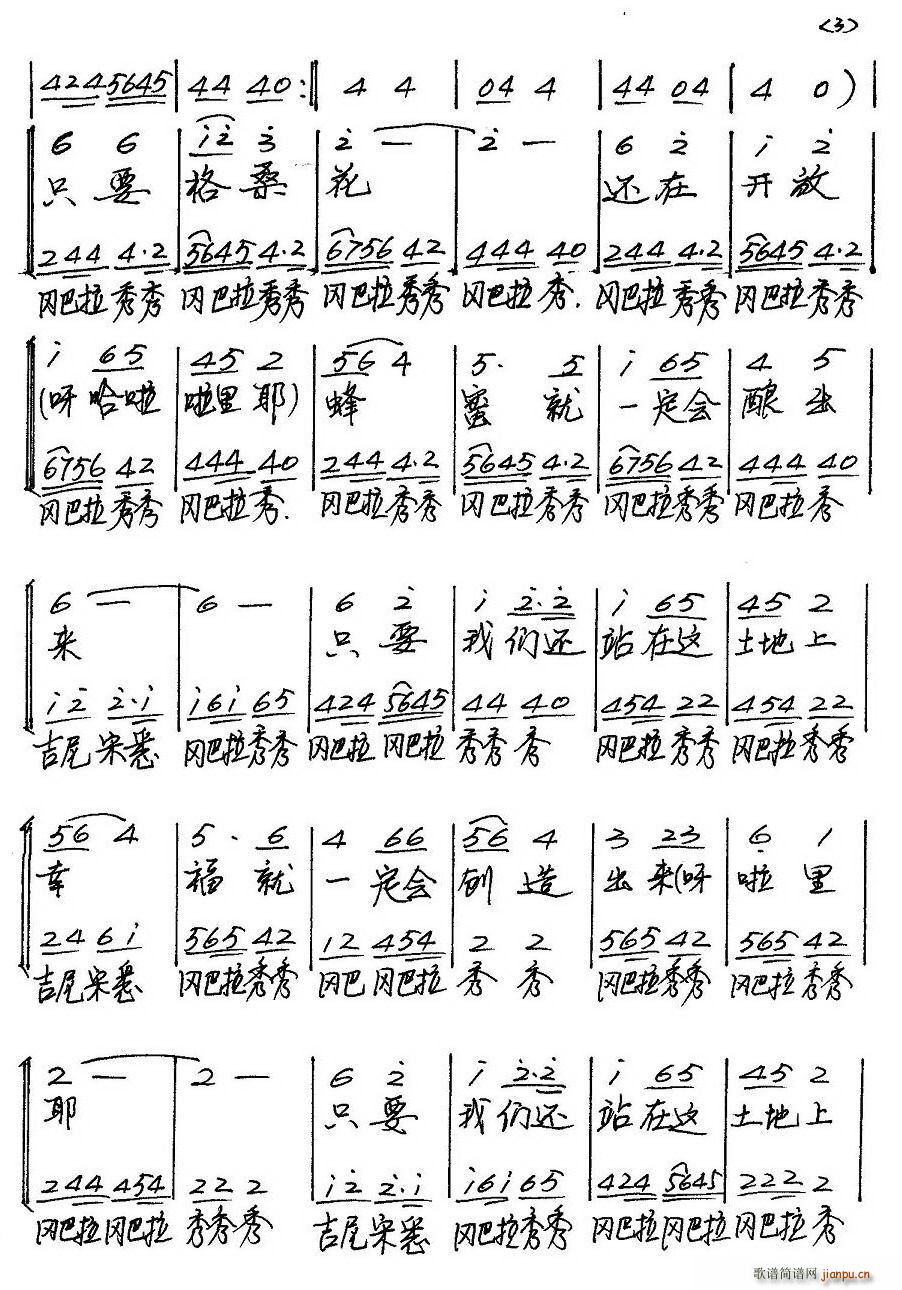 <3>
424 5645 | 44 40 :‖ 4 4 | 04 4 | 44 04 | 4 0 ) |
6 6 | i̇ 2̇ 3̇ | 2̇ — | 2̇ — | 6 2̇ | i̇ 2̇
只 要 格 桑 花 还 在 开 放
244 4·2 | 5645 4·2 | 6756 42 | 444 40 | 244 4·2 | 5645 4·2
冈巴拉 秀秀 冈巴拉秀秀 冈巴拉秀秀 冈巴拉 秀. 冈巴拉 秀秀 冈巴拉秀秀
i̇ 65 | 45 2 | 56 4 | 5· 5 | i̇ 65 | 4 5
(呀 哈啦 啦里 耶) 蜂 蜜 就 一 定会 酿 出
6756 42 | 444 40 | 244 4·2 | 5645 4·2 | 6756 42 | 444 40
冈巴拉秀秀 冈巴拉秀. 冈巴拉秀秀 冈巴拉秀秀 冈巴拉秀秀 冈巴拉秀
6 — | 6 — | 6 2̇ | i̇ 2̇·2̇ | i̇ 65 | 45 2
来 只 要 我 们还 站 在这 土地上
i̇2̇ 2̇·i̇ | i̇6i̇ 65 | 424 5645 | 44 40 | 454 22 | 454 22
吉尾 宋 冈巴拉秀秀 冈巴拉 冈巴拉 秀秀 秀 冈巴拉秀秀 冈巴拉秀秀
56 4 | 5· 6 | 4 66 | 56 4 | 3 23 | 6̣ 1
幸 福 就 一 定会 创 造 出 来(呀 啦 里
24 6i̇ | 565 42 | 12 454 | 2 2 | 565 42 | 565 42
吉尾宋 冈巴拉秀秀 冈巴 冈巴拉 秀 秀 冈巴拉秀秀 冈巴拉秀秀
2 — | 2 — | 6 2̇ | i̇ 2̇·2̇ | i̇ 65 | 45 2
耶 只 要 我 们还 站 在这 土地上
244 454 | 22 2 | i̇2̇ 2̇·i̇ | i̇6i̇ 65 | 424 5645 | 222 2
冈巴拉冈巴拉 秀秀 秀 吉尾 宋 冈巴拉秀秀 冈巴拉冈巴拉 冈巴拉 秀
歌谱简谱网
jianpu.cn